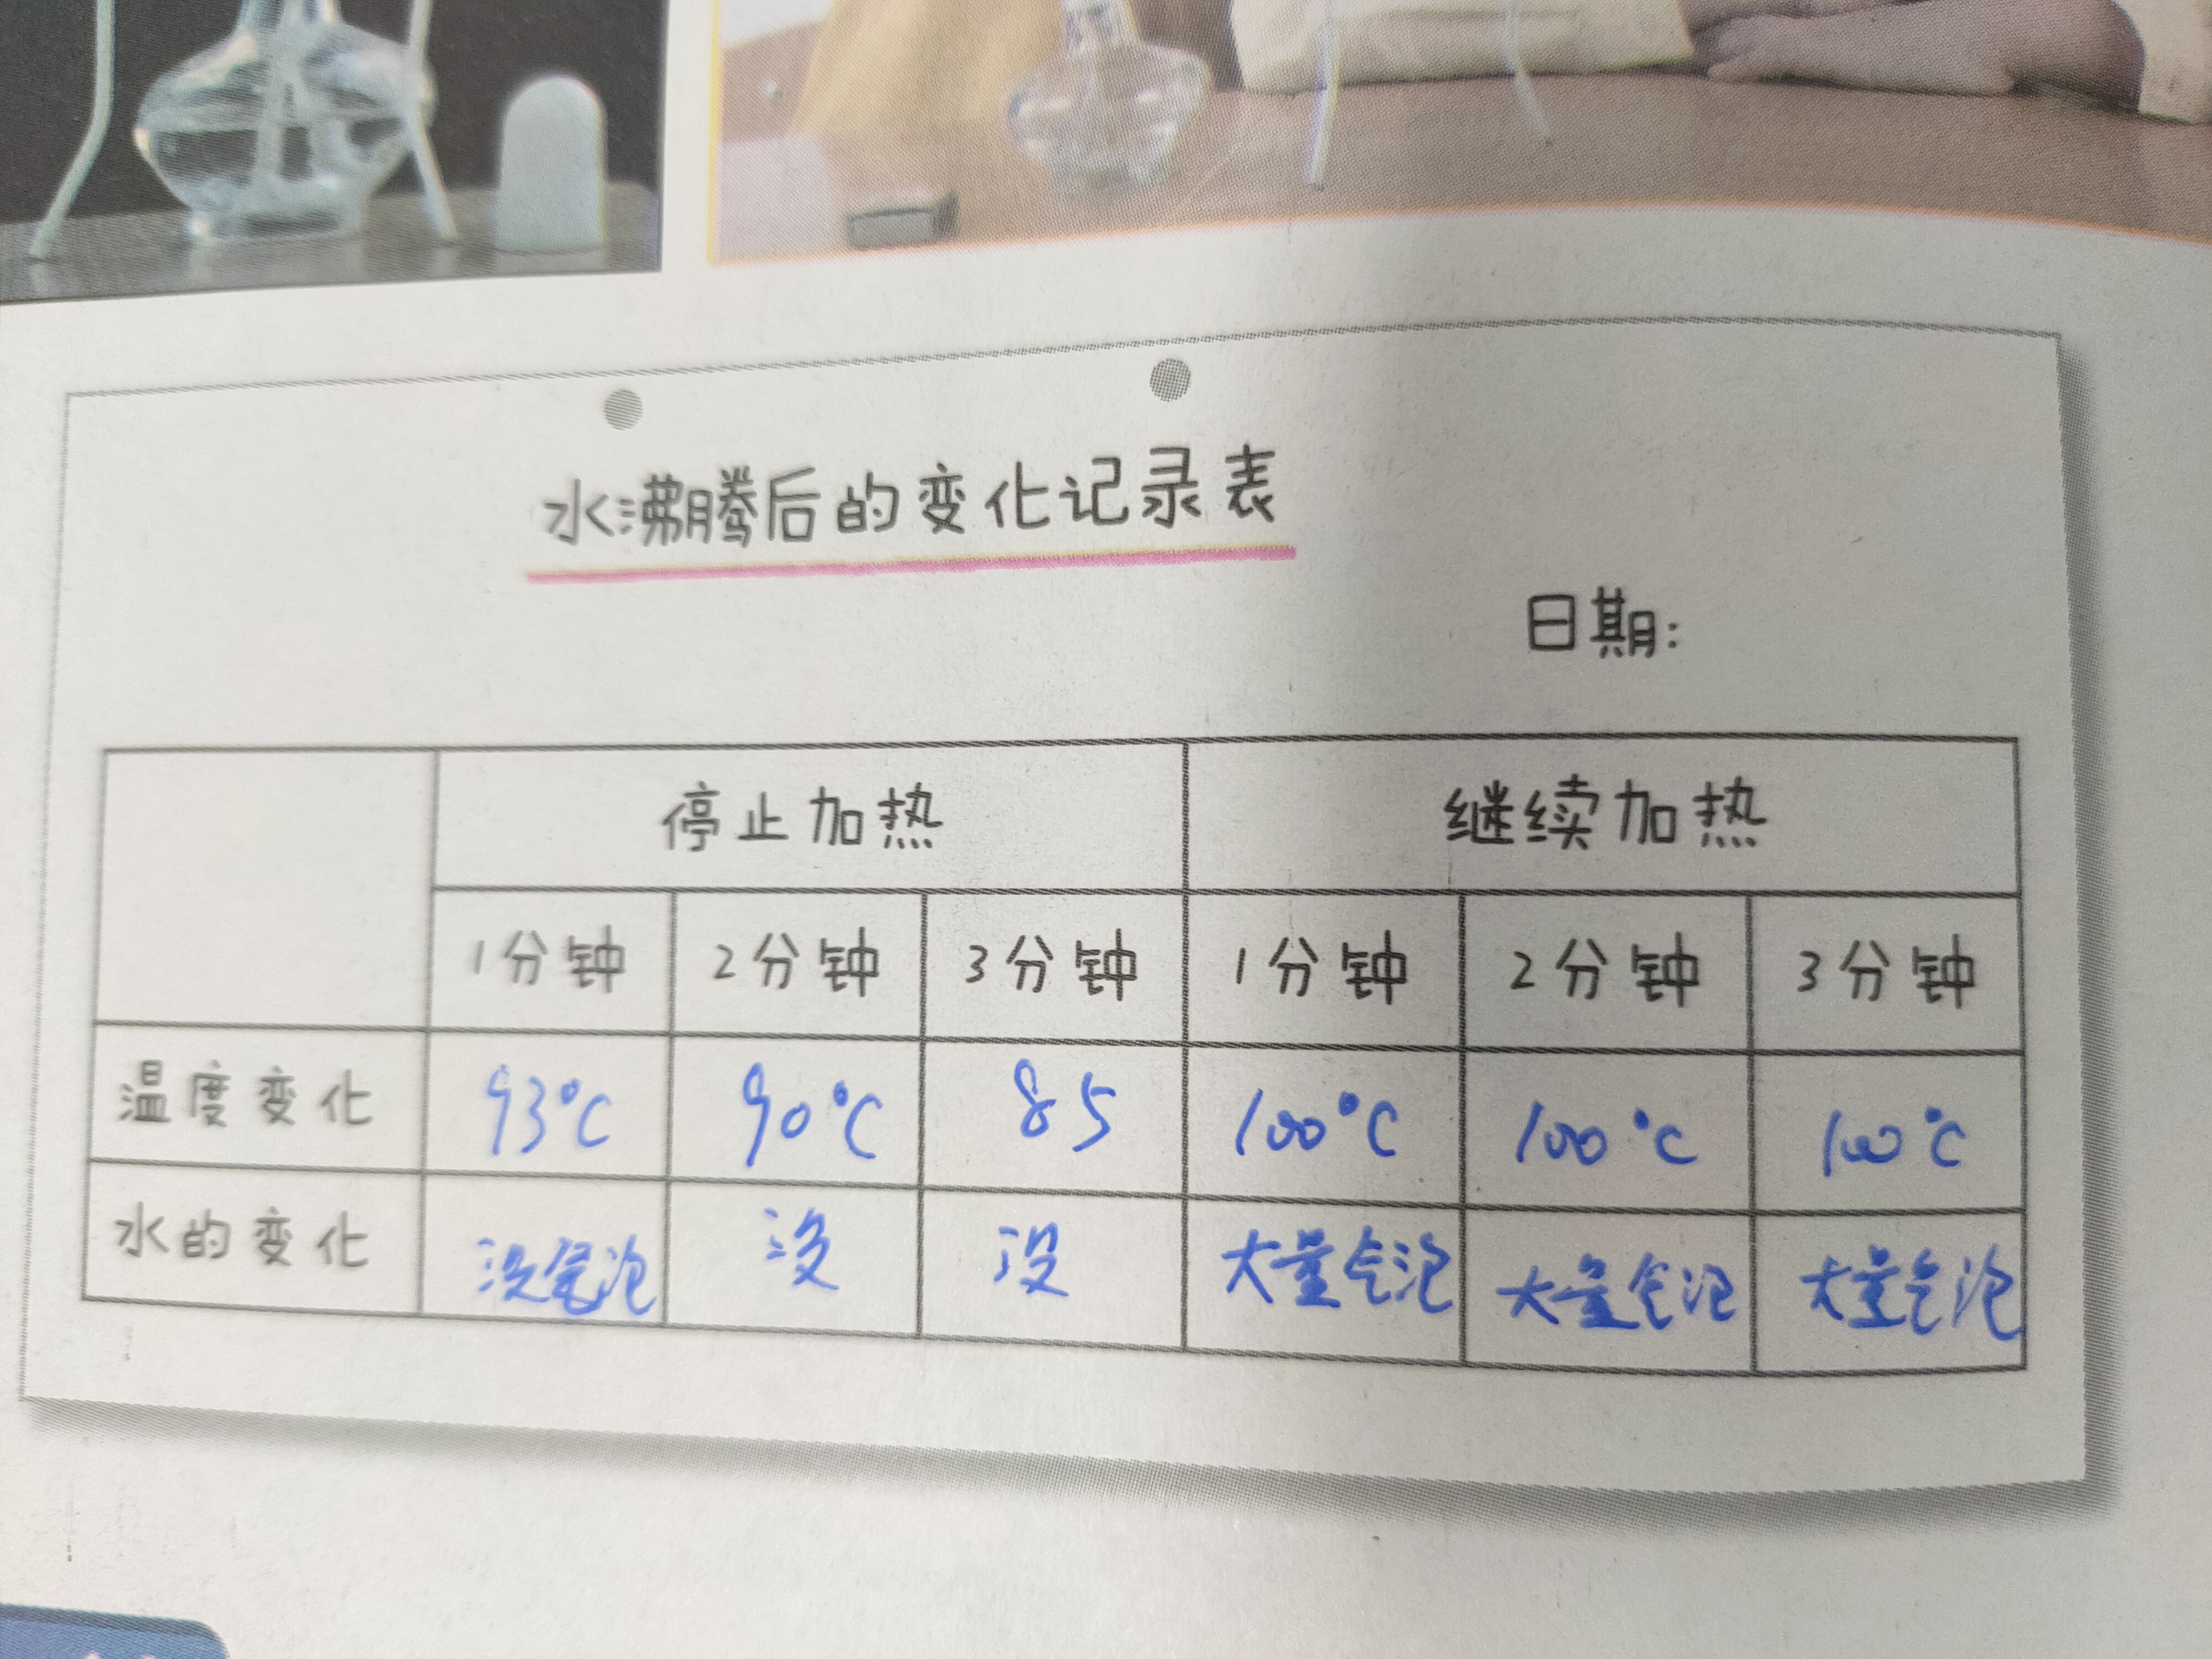 水沸腾后的变化记录表
日期:
停止加热 继续加热
1分钟 2分钟 3分钟 1分钟 2分钟 3分钟
温度变化 93°C 90°C 85 100°C 100°C 100°C
水的变化 没气泡 没 没 大量气泡 大量气泡 大量气泡